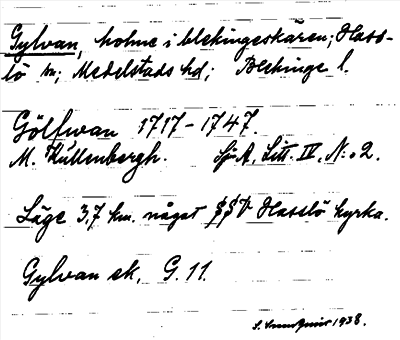 Gylvan, holme i blekingeskären; Hass-
lö sn; Medelstads hd; Blekinge l.
Gölfwan 1717-1747.
M. Kullenbergh. Sjö A, Litt. IV, N:o 2.
Läge 3,7 km. något SSV Hasslö kyrka.
Gylvan ek, G. 11.
1938.